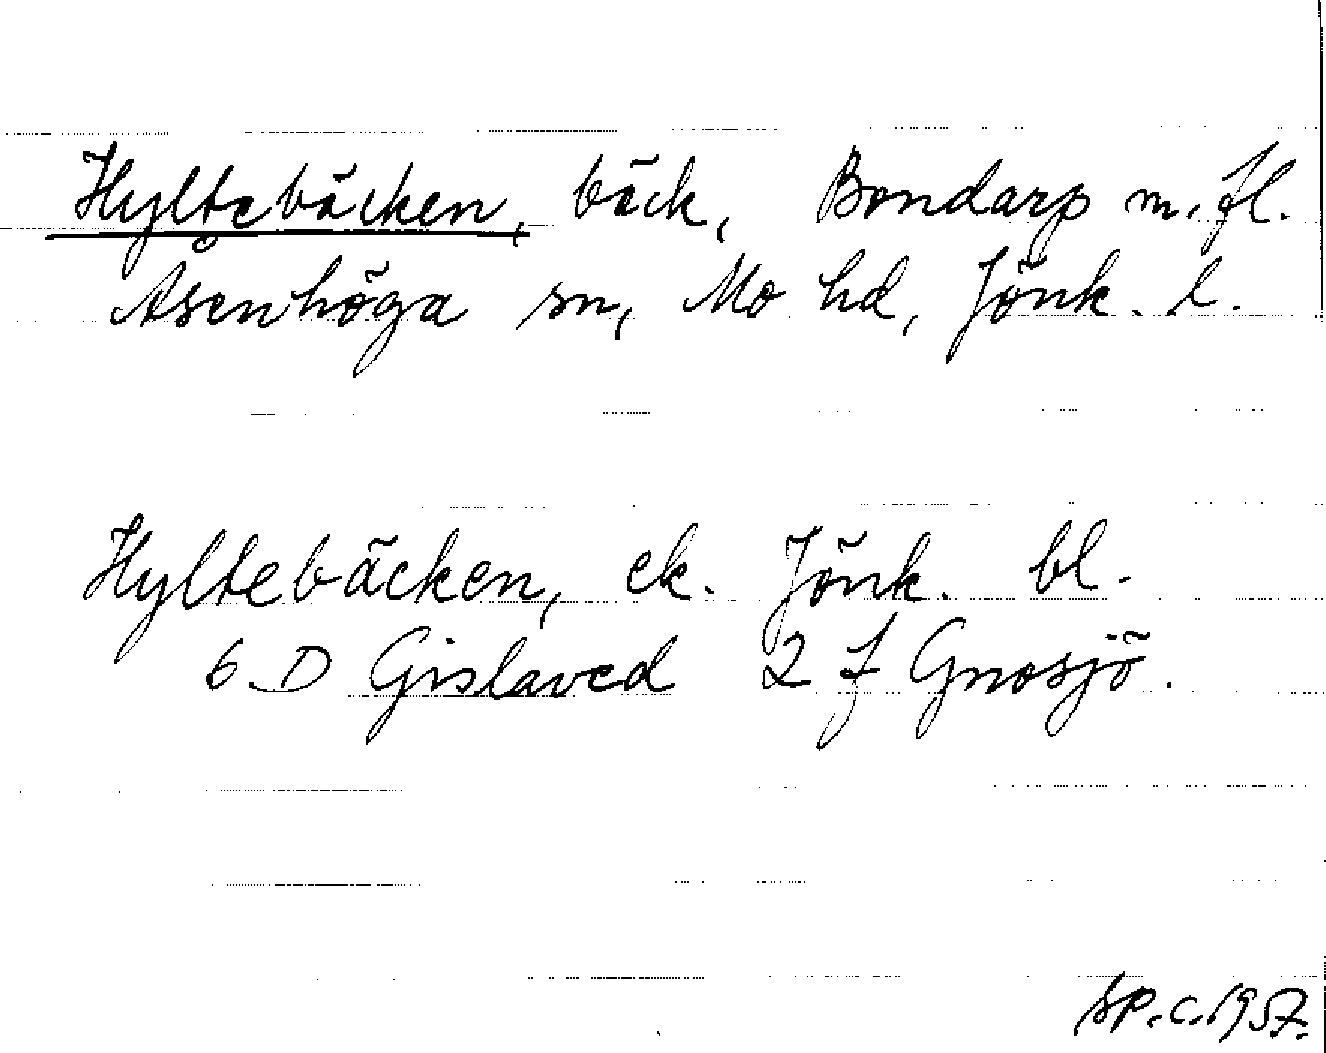 Hyltebäcken, bäck, Bondarp m. fl.
Åsenhöga sn, Mo hd, Jönk. l.
Hyltebäcken, ek. Jönk. bl.
6 D Gislaved 2 f Gnosjö.
SP.c.1957.